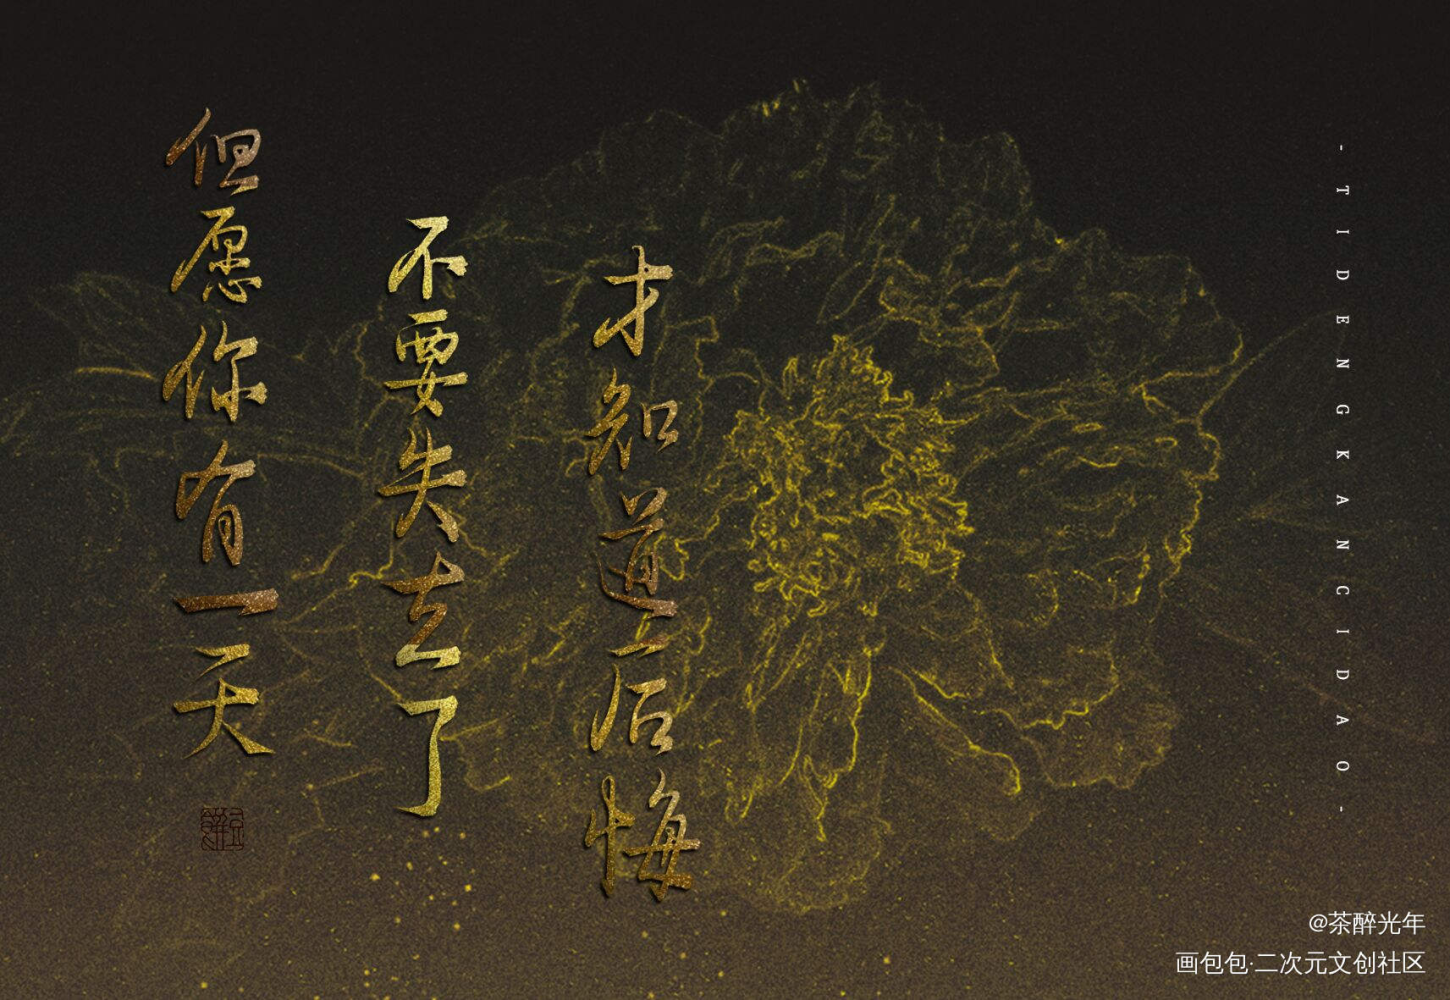 但愿你有一天
不要失去了
才知道后悔
- TIDENGKANCIDAO -
@茶醉光年
画包包·二次元文创社区